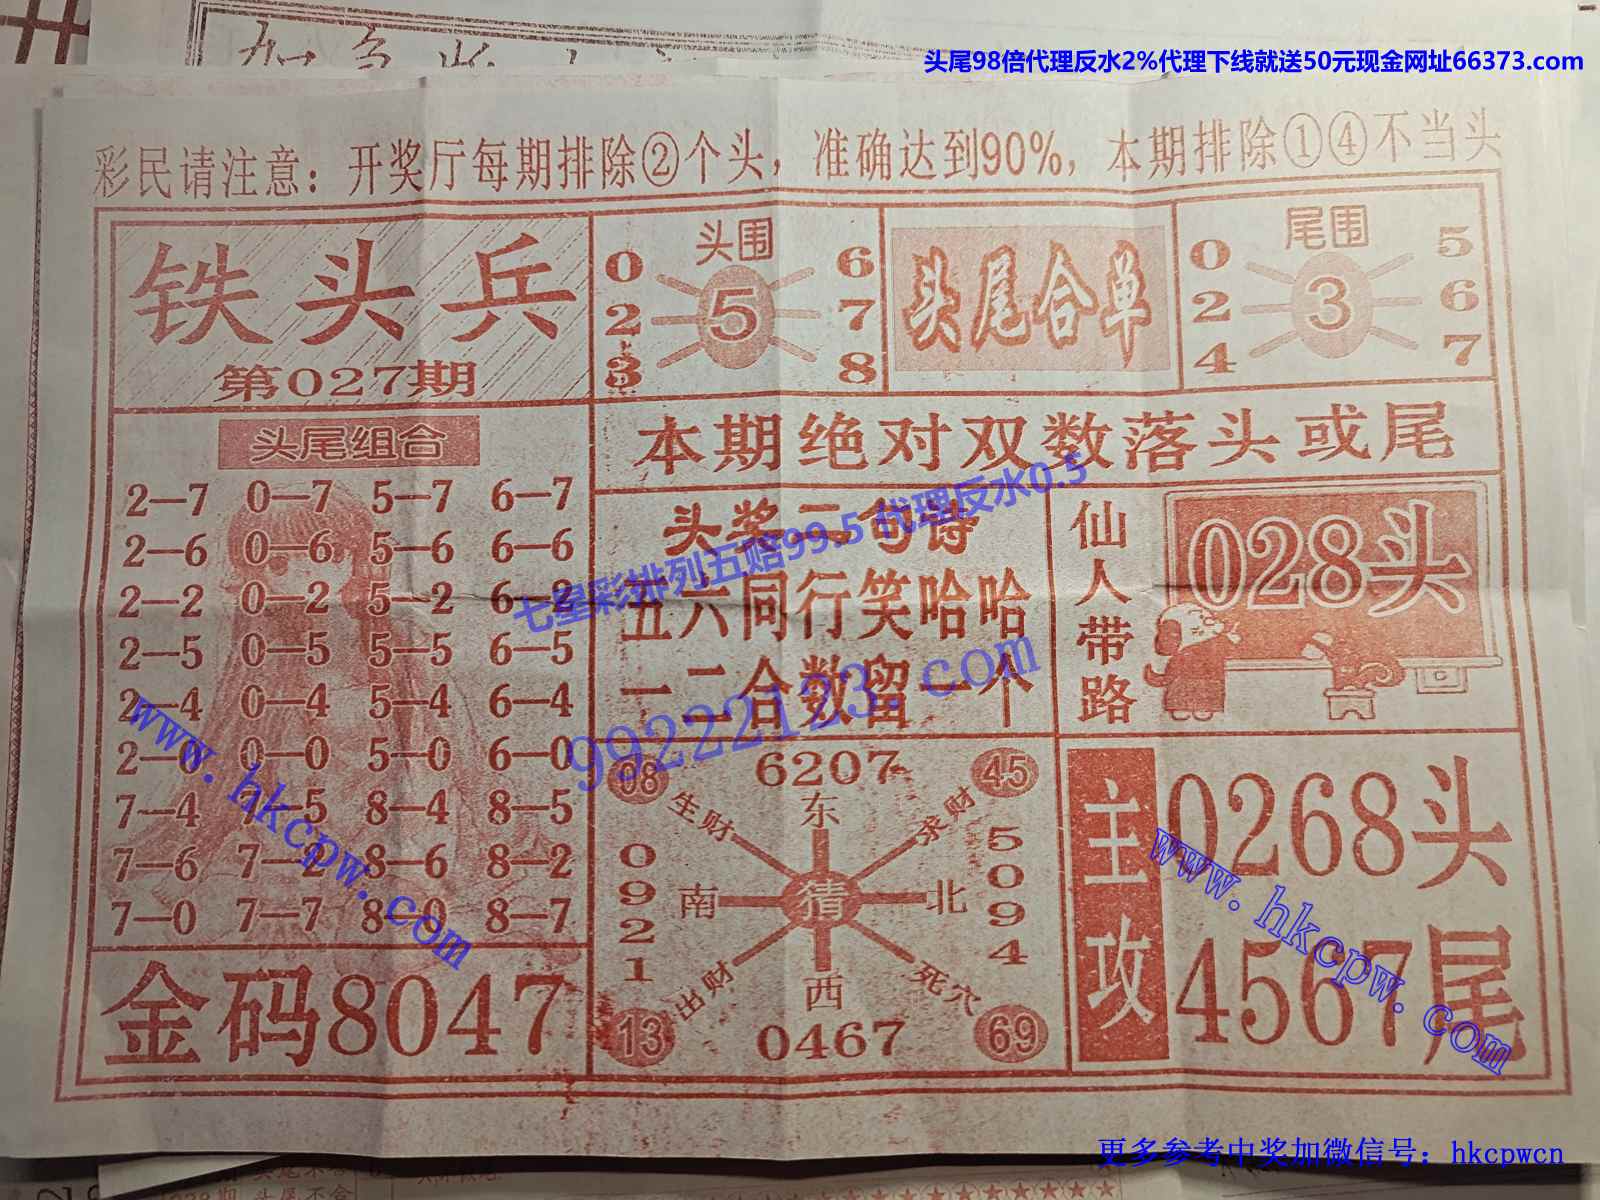 头尾98倍代理反水2%代理下线就送50元现金网址66373.com
彩民请注意：开奖厅每期排除②个头，准确达到90%，本期排除①④不当头
铁头兵
第027期
头围
0 6
2 5 7
3 8
头尾合单
尾围
0 5
2 3 6
4 7
本期绝对双数落头或尾
头尾组合
2—7 0—7 5—7 6—7
2—6 0—6 5—6 6—6
2—2 0—2 5—2 6—2
2—5 0—5 5—5 6—5
2—4 0—4 5—4 6—4
2—0 0—0 5—0 6—0
7—4 7—5 8—4 8—5
7—6 7—2 8—6 8—2
7—0 7—7 8—0 8—7
金码8047
头奖二句诗
五六同行笑哈哈
一二合数留一个
仙人带路
028头
08 6207 45
生财 东 求财
0921 南 猜 北 5094
出财 西 死穴
13 0467 69
主攻
0268头
4567尾
七星彩排列五赔99.5 代理反水0.5
99222123.com
www.hkcpw.com
www.hkcpw.com
更多参考中奖加微信号：hkcpwcn